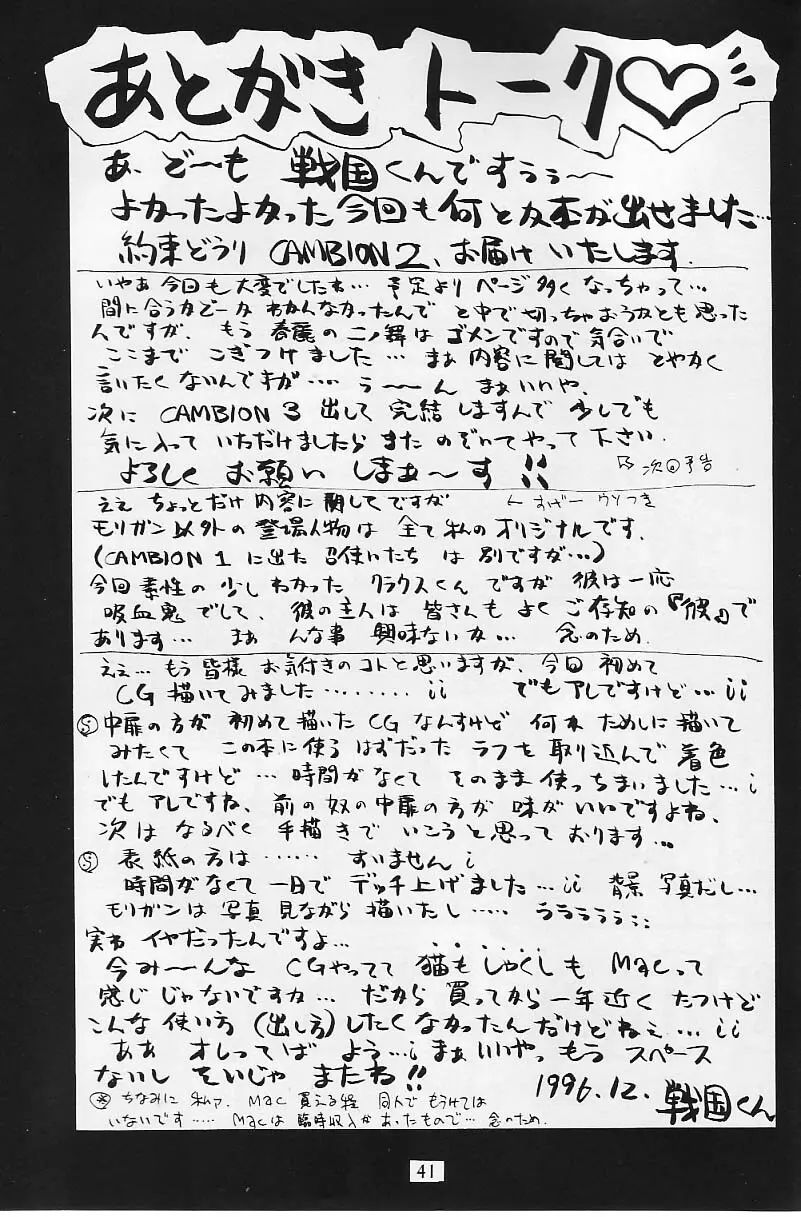 あとがきトーク♡
あ、ど〜も 戦国くんですぅぅ〜
よかったよかった今回も何とか本が出せました…
約束どうり CAMBION 2、お届けいたします.
いやあ今回も大変でしたね… 予定よりページ多くなっちゃって…
間に合うかどーかわかんなかったんで と中で切っちゃおうかとも思った
んですが、もう 春麗の二ノ舞は ゴメンですので気合いで
ここまで こぎつけました… まぁ内容に関しては とやかく
言いたくないんですが…. う〜〜ん まぁいいや、
次に CAMBION 3 出して 完結しますんで 少しでも
気に入って いただけましたら また のぞいてやって下さい.
よろしく お願い しまぁ〜す!!
次回予告
ええ ちょっとだけ内容に関してですが
← すげー ウソつき
モリガン以外の登場人物は 全て私のオリジナルです.
(CAMBION 1 に出た 召使いたち は 別ですが…)
今回素性の少しわかった クラウスくん ですが 彼は一応
吸血鬼でして、彼の主人は 皆さんも よく ご存知の『彼』で
あります… まぁ んな事 興味ないか… 念のため.
ええ… もう皆様 お気付きのコトと思いますが、今回 初めて
CG 描いてみました…….. ¡¡ でもアレですけど… ¡¡
Ⓢ 中扉の方が 初めて描いた CG なんすけど 何か ためしに描いて
みたくて この本に使う はずだった ラフを取り込んで 着色
したんですけど… 時間がなくて そのまま 使っちまいました… ¡
でも アレですね、前の奴の中扉の方が 味がいいですよね、
次は なるべく 手描きで いこうと思っております…
Ⓢ 表紙の方は…… すいません ¡
時間がなくて 一日で デッチ上げました… ¡¡ 背景 写真だし…
モリガンは 写真 見ながら 描いたし….. うううううう;;
実わ イヤだったんですよ…
今み〜〜んな CGやってて 猫もしゃくしも Macって
感じじゃないですか… だから 買ってから一年近く たつけど
こんな 使い方 (出し方) したくなかったんだけどねぇ… ¡¡
ああ オレってば よう…¡ まぁいいやっ もう スペース
ないし そいじゃ またね!!
1996.12. 戦国くん
※ ちなみに 私ァ、Mac 買える程 同人で もうけては
いないです….. Macは臨時収入が あったもので… 念のため.
41